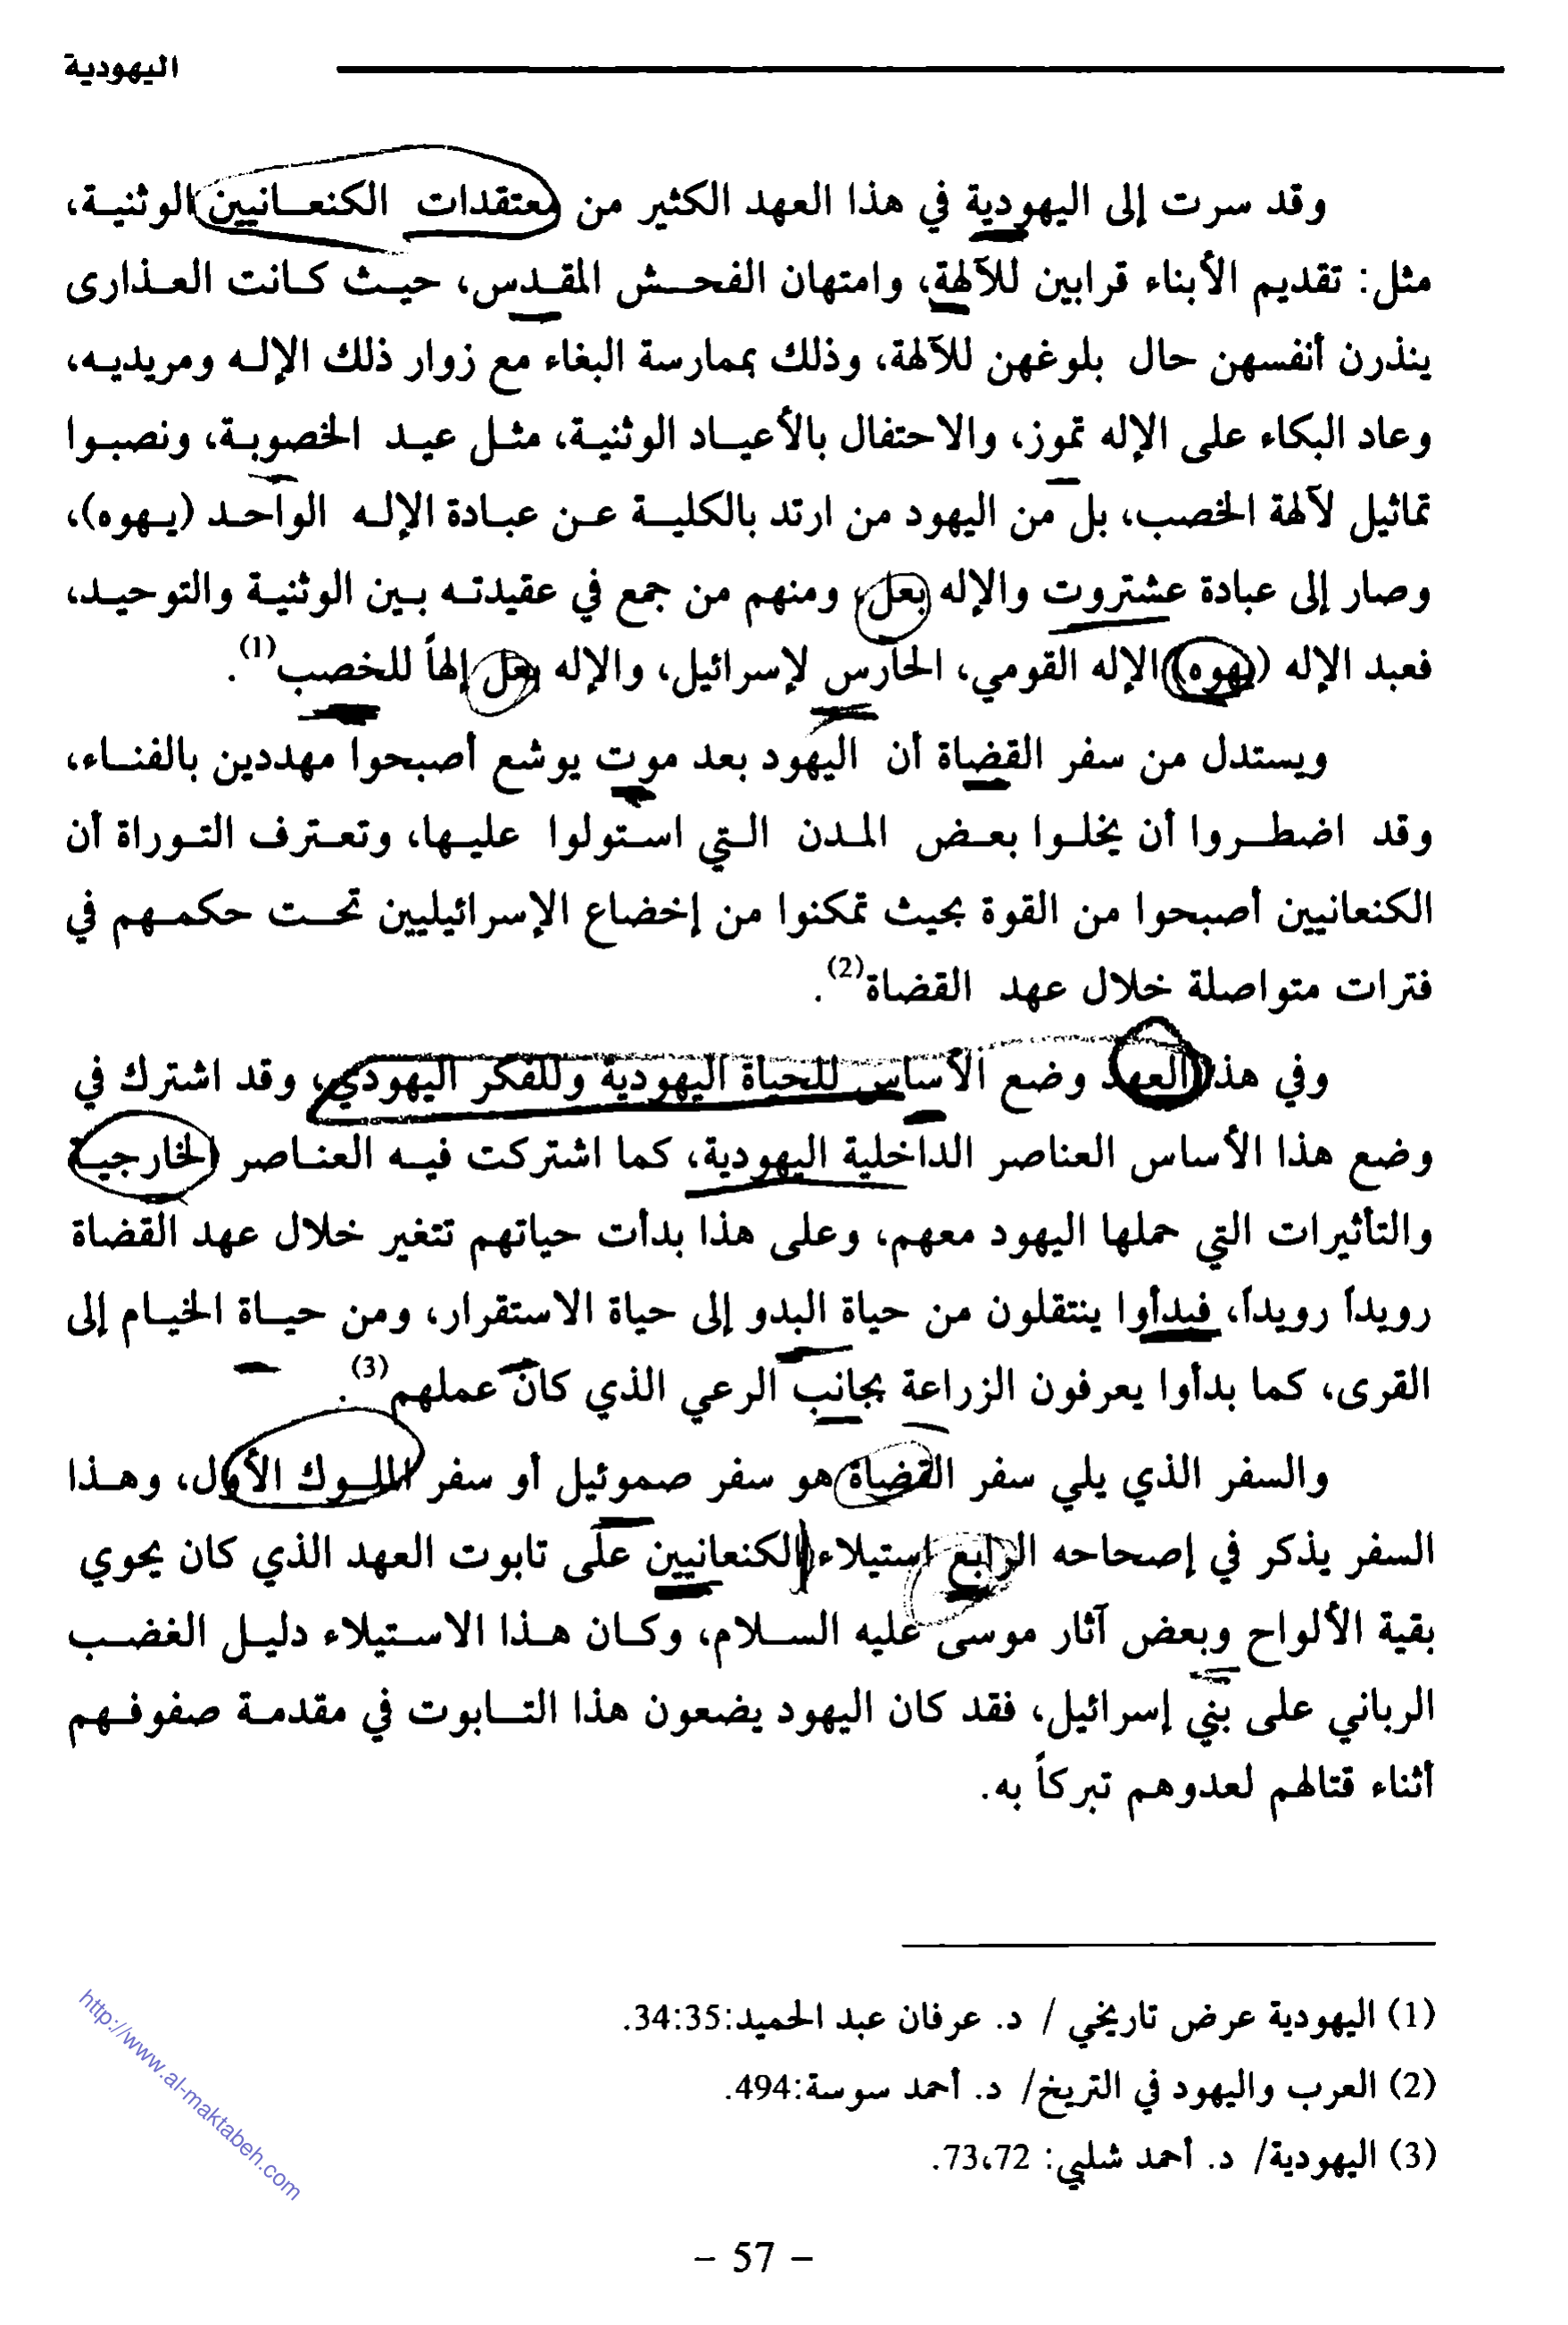 اليهودية
وقد سرت إلى اليهودية في هذا العهد الكثير من معتقدات الكنعانيين الوثنية،
مثل: تقديم الأبناء قرابين للآلهة، وامتهان الفحش المقدس، حيث كانت العذارى
ينذرن أنفسهن حال بلوغهن للآلهة، وذلك بممارسة البغاء مع زوار ذلك الإله ومريديه،
وعاد البكاء على الإله تموز، والاحتفال بالأعياد الوثنية، مثل عيد الخصوبة، ونصبوا
تماثيل لآلهة الخصب، بل من اليهود من ارتد بالكلية عن عبادة الإله الواحد (يهوه)،
وصار إلى عبادة عشتروت والإله بعل، ومنهم من جمع في عقيدته بين الوثنية والتوحيد،
فعبد الإله (يهوه) الإله القومي، الحارس لإسرائيل، والإله بعل إلهاً للخصب(1).
ويستدل من سفر القضاة أن اليهود بعد موت يوشع أصبحوا مهددين بالفناء،
وقد اضطروا أن يخلوا بعض المدن التي استولوا عليها، وتعترف التوراة أن
الكنعانيين أصبحوا من القوة بحيث تمكنوا من إخضاع الإسرائيليين تحت حكمهم في
فترات متواصلة خلال عهد القضاة(2).
وفي هذا العهد وضع الأساس للحياة اليهودية وللفكر اليهودي، وقد اشترك في
وضع هذا الأساس العناصر الداخلية اليهودية، كما اشتركت فيه العناصر الخارجية
والتأثيرات التي حملها اليهود معهم، وعلى هذا بدأت حياتهم تتغير خلال عهد القضاة
رويداً رويداً، فبدأوا ينتقلون من حياة البدو إلى حياة الاستقرار، ومن حياة الخيام إلى
القرى، كما بدأوا يعرفون الزراعة بجانب الرعي الذي كان عملهم(3).
والسفر الذي يلي سفر القضاة هو سفر صموئيل أو سفر الملوك الأول، وهذا
السفر يذكر في إصحاحه الرابع استيلاء الكنعانيين على تابوت العهد الذي كان يحوي
بقية الألواح وبعض آثار موسى عليه السلام، وكان هذا الاستيلاء دليل الغضب
الرباني على بني إسرائيل، فقد كان اليهود يضعون هذا التابوت في مقدمة صفوفهم
أثناء قتالهم لعدوهم تبركاً به.
(1) اليهودية عرض تاريخي / د. عرفان عبد الحميد:34:35.
(2) العرب واليهود في التريخ/ د. أحمد سوسة:494.
(3) اليهودية/ د. أحمد شلبي: 73،72.
http://www.al-maktabeh.com
- 57 -